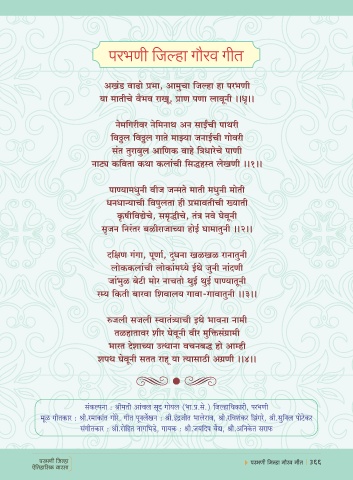 परभणी जिल्हा गौरव गीत
अखंड वाढो प्रभा, आमुचा जिल्हा हा परभणी
या मातीचे वैभव राखू, प्राण पणा लावूनी ।।धृ।।
नेमगिरीवर नेमिनाथ अन साईंची पाथरी
विठ्ठल विठ्ठल गाते माझ्या जनाईची गोवरी
संत तुराबुल आणिक वाहे त्रिधारेचे पाणी
नाट्य कविता कथा कलांची सिद्धहस्त लेखणी ।।१।।
पाण्यामधुनी वीज जन्मते माती मधुनी मोती
धनधान्याची विपुलता ही प्रभावतीची ख्याती
कृषीविद्येचे, समृद्धीचे, तंत्र नवे घेवूनी
सृजन निरंतर बळीराजाच्या होई घामातुनी ।।२।।
दक्षिण गंगा, पूर्णा, दुधना खळखळ रानातुनी
लोककलांची लोकांमध्ये ईथे जुनी नांदणी
जांभुळ बेटी मोर नाचतो थुई थुई पाण्यातुनी
रम्य किती बारवा शिवालय गावा-गावातुनी ।।३।।
रुजली सजली स्वातंत्र्याची इथे भावना नामी
तळहातावर शीर घेवूनी वीर मुक्तिसंग्रामी
भारत देशाच्या उत्थाना वचनबद्ध हो आम्ही
शपथ घेवूनी सतत राहू या त्यासाठी अग्रणी ।।४।।
संकल्पना : श्रीमती आंचल सूद गोयल (भा.प्र.से.) जिल्हाधिकारी, परभणी
मूळ गीतकार : श्री.रमाकांत गोरे, गीत पुनर्लेखन : श्री.इंद्रजीत भालेराव, श्री.रविशंकर झिंगरे, श्री.सुनिल पोटेकर
संगीतकार : श्री.रोहित नागभिडे, गायक : श्री.जयदिप वैद्य, श्री.अनिकेत सराफ
परभणी जिल्हा
ऐतिहासिक वारसा
परभणी जिल्हा गौरव गीत : ३६६